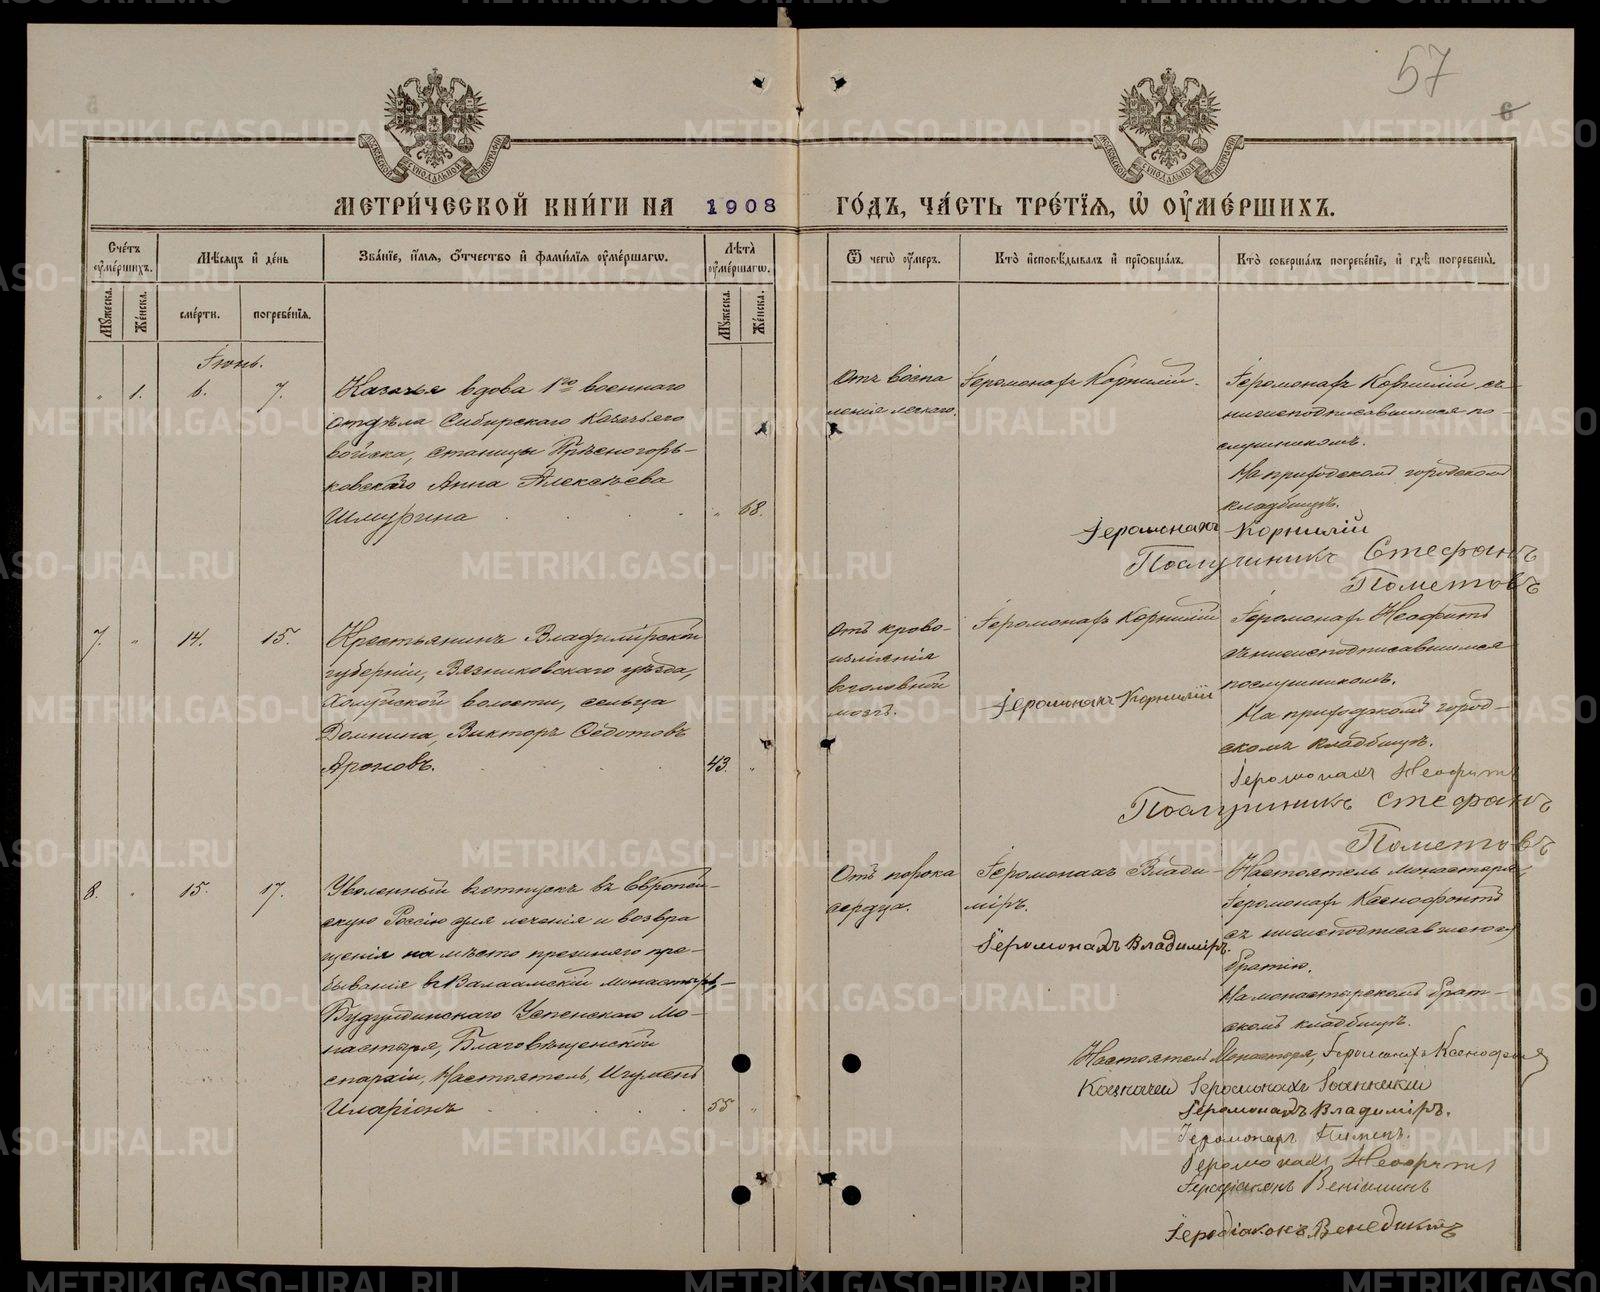 57
6
МОСКОВСКОЙ СѴНОДАЛЬНОЙ ТИПОГРАФІИ
МОСКОВСКОЙ СѴНОДАЛЬНОЙ ТИПОГРАФІИ
МЕТРИ́ЧЕСКОЙ КНИ́ГИ НА 1908 ГО́ДЪ, ЧА́СТЬ ТРЕ́ТІЯ, Ѡ҆ ОУ҆МЕ́РШИХЪ.
Сче́тъ оу҆ме́ршихъ.
Мѣ́сяцъ и҆ де́нь
Зва́нїе, и҆́мя, ѻ҆́тчество и҆ фами́лїя оу҆ме́ршагѡ.
Лѣ́та оу҆ме́ршагѡ.
Ѿ чегѡ̀ оу҆́меръ.
Кто̀ и҆сповѣ́дывалъ и҆ прїѡбща́лъ.
Кто̀ соверша́лъ погребе́нїе, и҆ гдѣ̀ погребены̀.
Мꙋ́жеска.
Же́нска.
сме́рти.
погребе́нїя.
Мꙋ́жеска.
Же́нска.
Іюнь.
" 1. 6. 7.
Казачья вдова 1го военнаго
отдѣла Сибирскаго Казачьяго
войска, станицы Прѣсногорь-
ковской Анна Алексѣева
Шмурина " 68.
Отъ воспа
ленія легкаго.
Іеромонахъ Корнилій.
Іеромонахъ Корнилій съ
нижеподписавшимся по-
слушникомъ.
На приходскомъ городскомъ
кладбищѣ.
Іеромонахъ Корнилій
Послушникъ Стефанъ
Пометовъ
7. " 14. 15.
Крестьянинъ Владимірской
губерніи, Вязниковскаго уѣзда,
Холуйской волости, сельца
Домнина, Викторъ Ѳедотовъ
43. "
Отъ крово-
изліянія
въ головной
мозгъ.
Іеромонахъ Корнилій
Іеромонахъ Корнилій
Іеромонахъ Неофитъ
съ нижеподписавшимся
послушникомъ.
На приходскомъ город-
скомъ кладбищѣ.
Іеромонахъ Неофитъ
Послушникъ Стефанъ
Пометовъ
8. " 15. 17.
Уволенный въ отпускъ въ Европей-
скую Россію для леченія и возвра
щенія на мѣсто прежняго пре-
быванія въ Валаамскій монастырь,-
Успенскаго Мо-
настыря, Благовѣщенской
епархіи, Настоятель, Игуменъ
Иларіонъ 55 "
Отъ порока
сердца.
Іеромонахъ Влади-
міръ.
Іеромонахъ Владиміръ.
Настоятель монастыря,
Іеромонахъ Ксенофонтъ
съ нижеподписавшеюся
братіею.
На монастырскомъ брат-
скомъ кладбищѣ.
Настоятель Монастыря, Іеромонахъ Ксенофонтъ
Казначей Іеромонахъ Іоанникій
Іеромонахъ Владиміръ.
Іеромонахъ Пименъ.
Іеромонахъ Неофитъ
Іеродіаконъ Веніаминъ
Іеродіаконъ Венедиктъ
METRIKI.GASO-URAL.RU